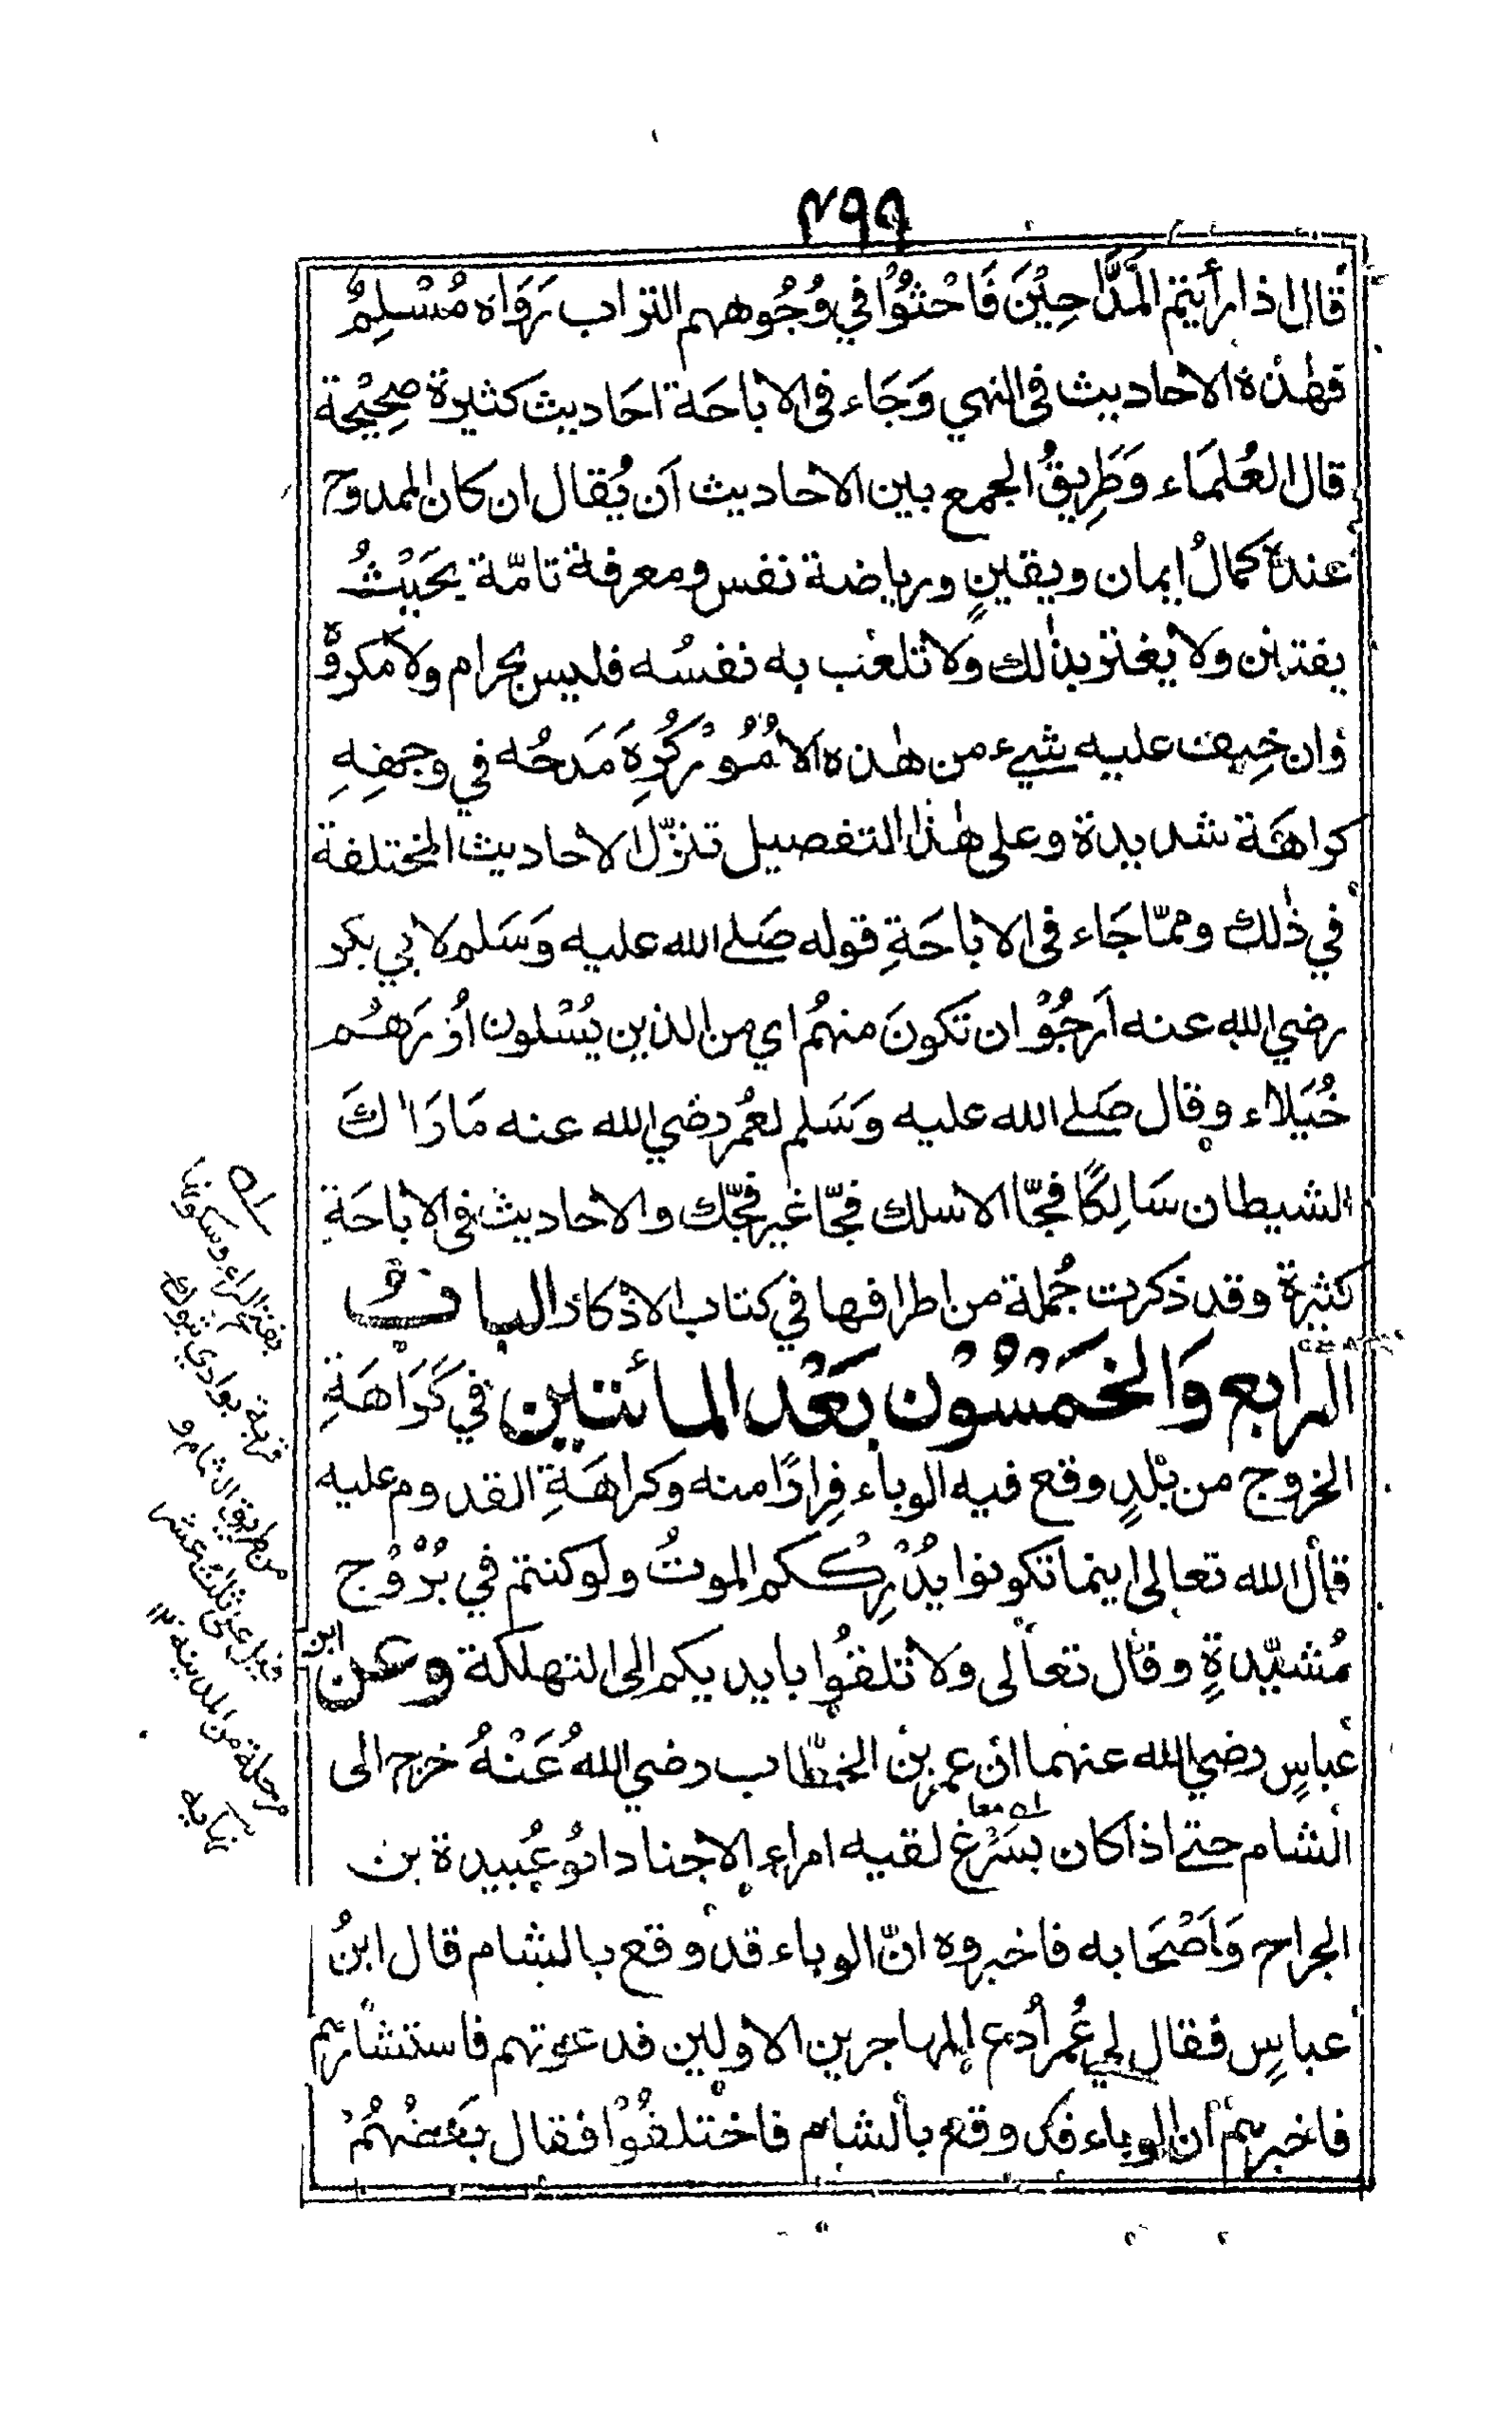 ٤٩٩
قال اذا رأيتم المَدَّاحِيْنَ فَاحْثوُا في وُجُوههم التراب رَوَاه مُسْلِمٌ
فهٰذه الاحاديث فى النهي وَجَاء فى الاباحَة احَاديث كثيرة صحِيْحة
قال العُلمَاء وَطَرِيقُ الجمع بين الاحاديث اَن يُقال ان كان الممدوح
عنده كمالُ ايمان ويقينٍ ورياضة نفس ومعرفة تامّة بحَيْثُ
يفتتن ولا يغتر بذٰلك ولا تلعَب به نفسُه فليس بحرام ولا مكروه
وان خِيف عليه شيء من هٰذه الامُوْر كُرِهَ مَدحُه في وجهِهِ
كراهَة شديدة وعلى هٰذا التفصيل تنزّل الاحاديث المختلفة
في ذٰلك وممّا جَاء فى الاباحَةِ قوله صَلے الله عليه وَسَلم لابي بكر
رضي الله عنه اَرجُوْ ان تَكونَ منهُم اي من الذين يُسْلون اُوزرَهُم
خُيَلاء وقال صَلے الله عليه وَسَلم لعُمر رضي الله عنه مَا رَاٰكَ
الشيطان سَالِكًا فجّا الا سلك فجّا غير فجّك والاحاديث فى الاباحَةِ
كثيرة وقد ذكرت جُملة من اطرافها في كتاب الاذكار الباب
الرابع وَالخمَسُون بَعْد المائتين في كَرَاهَةِ
الخروج من بَلدٍ وقع فيه الوباء فِرارًا منه وكراهَةِ القدوم عليه
قال الله تعالى اينما تكونوا يُدْرِككم الموتُ ولو كنتم في بُرُوْج
مُشيّدةٍ وقال تعالى ولا تلقوا بايديكم الى التهلكة وعن ابن
عباسٍ رضي الله عنهما ان عمر بن الخطّاب رضي اللهُ عَنْهُ خرج الى
الشام حتے اذا كان بسَرْغ لقيه امراء الاجناد ابُو عُبيدة بن
الجراح وَاَصْحَابه فاخبروه انّ الوباء قد وقع بالشام قال ابنُ
عباسٍ فقال لي عُمر اُدع المهاجرين الاولين فدعوتهم فاستشارهم
فاخبرهم ان الوباء قد وقع بالشام فاختلفُوْا فقال بَعضُهُمْ
بفتح الراء وسكونها
قرية بوادي تبوك
من طريق الشام و
قيل على ثلث عشر
مرحلة من المدينة ١٢
نهايه